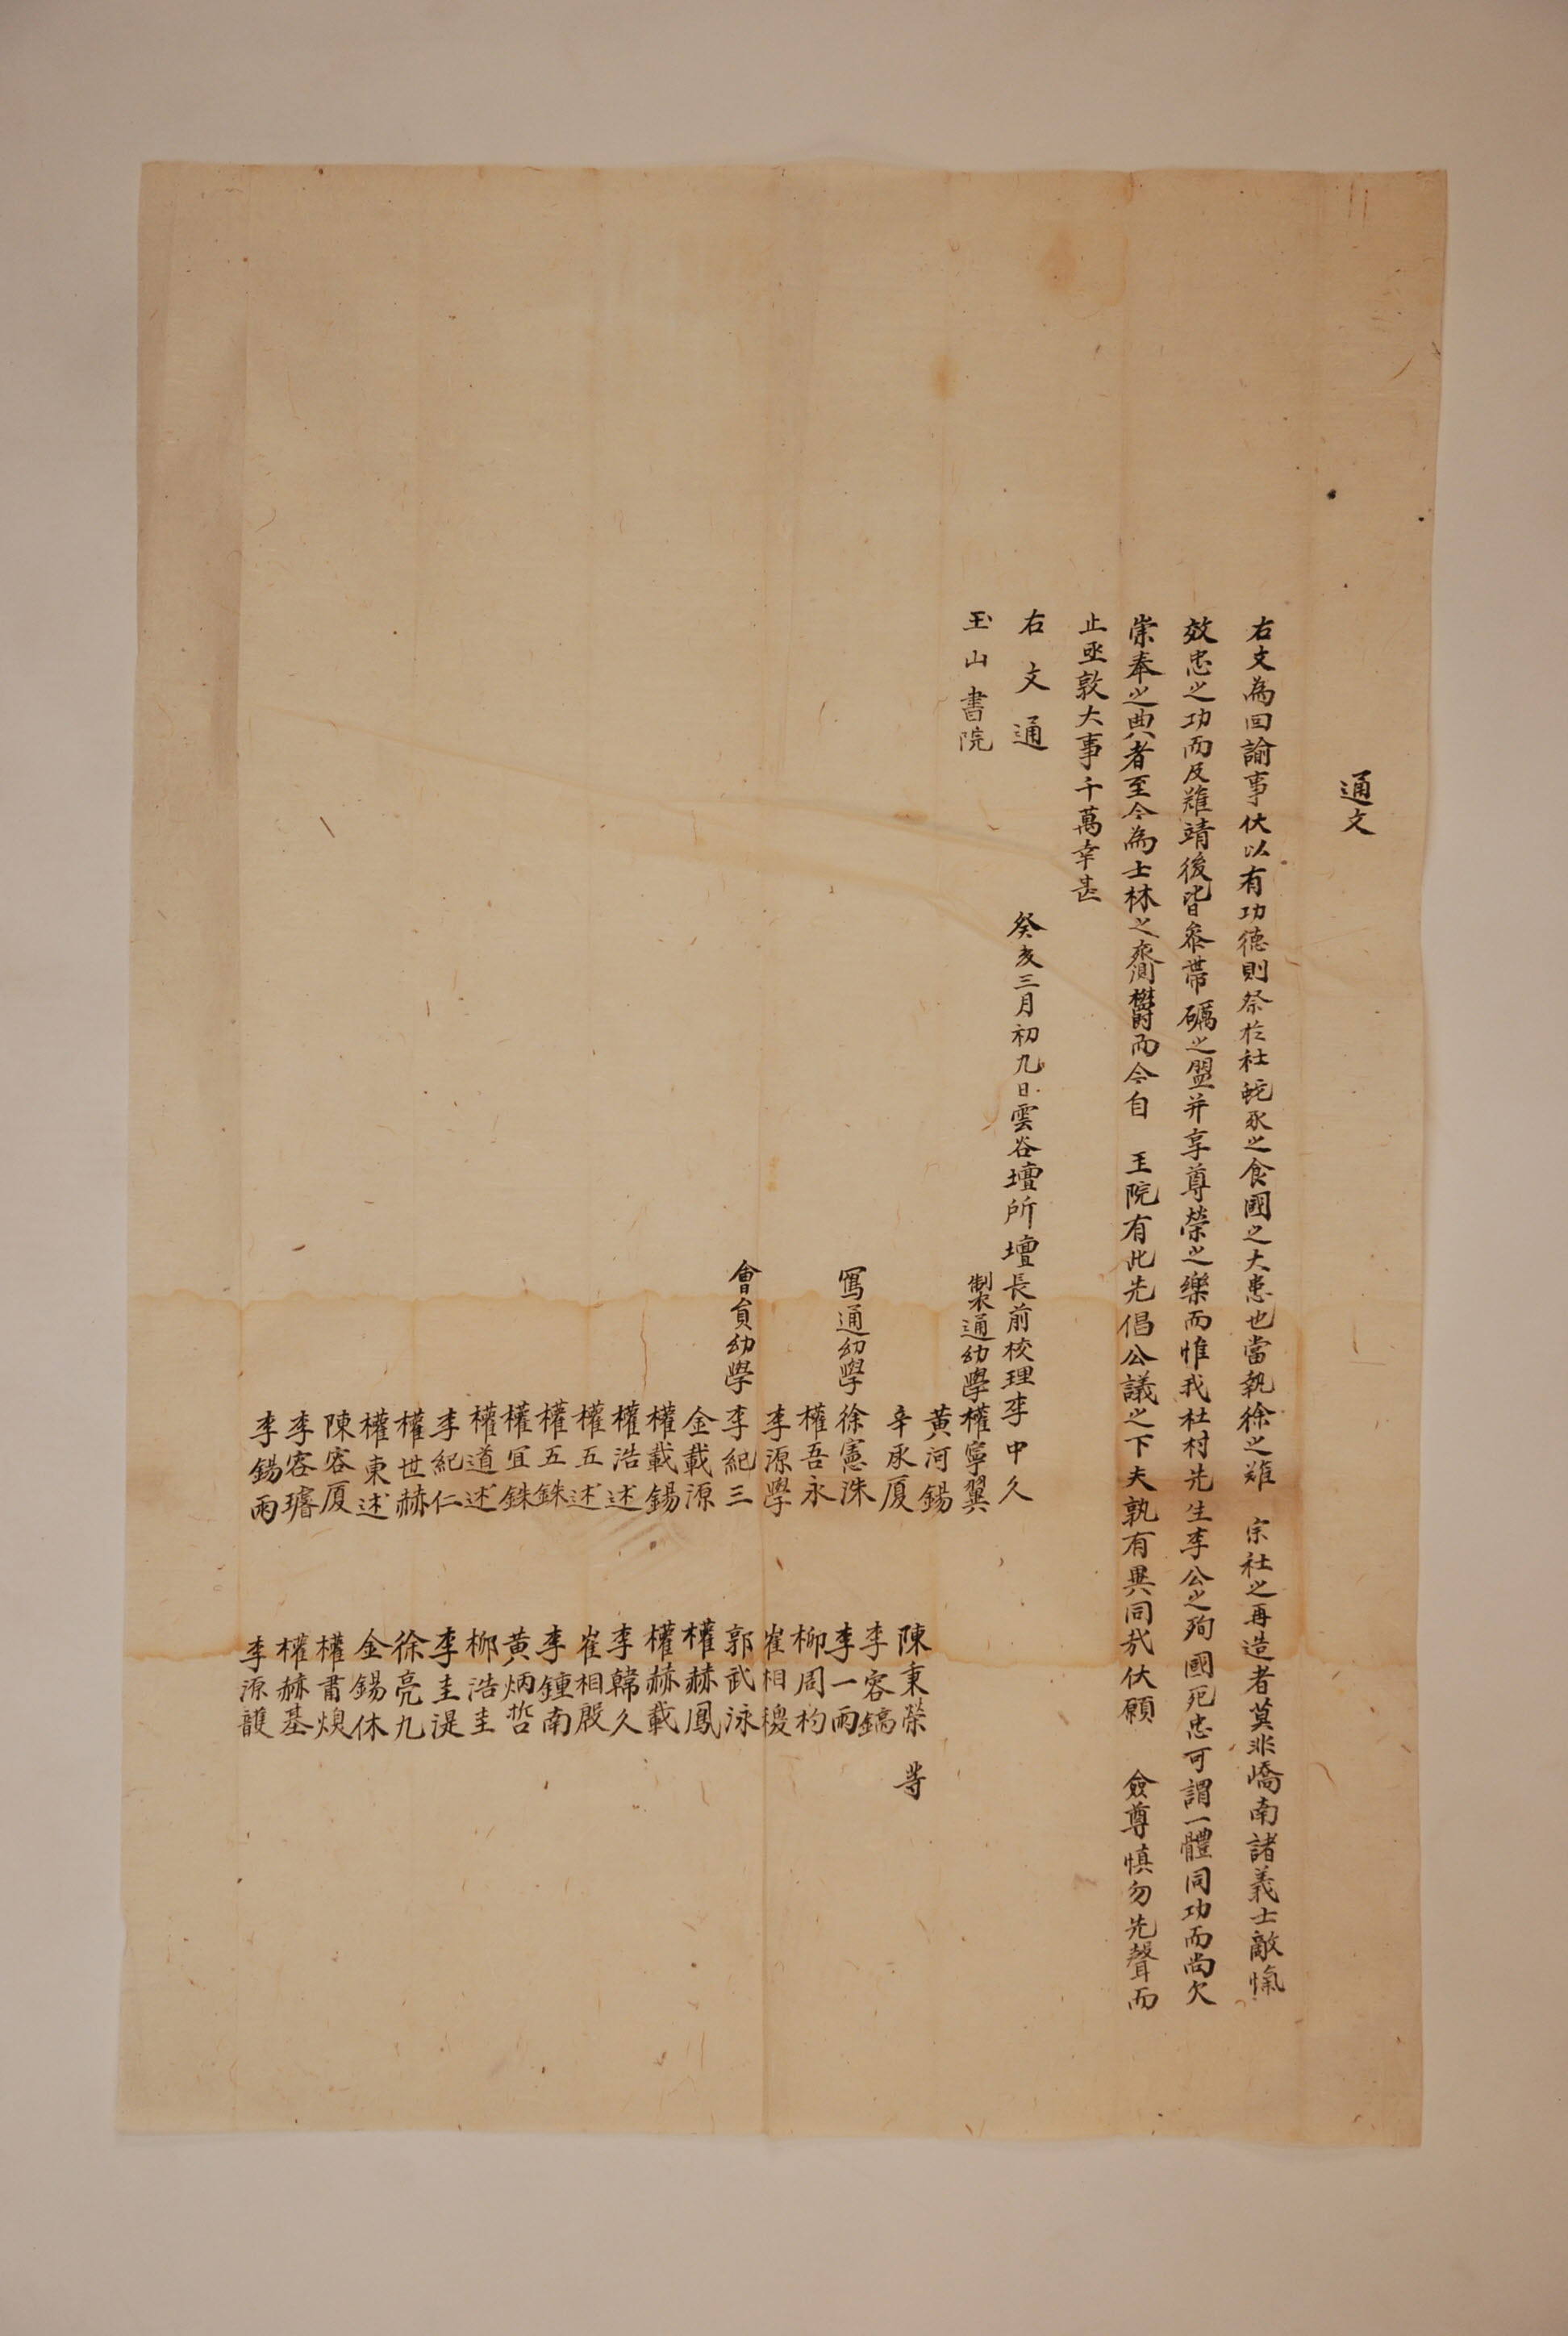 通文
右文為回諭事伏以有功德則祭於社蛇豕之食國之大患也當執徐之難 宗社之再造者莫非嶠南諸義士敵愾
效忠之功而及難靖後皆參帶礪之盟并享尊榮之樂而惟我杜村先生李公之殉國死忠可謂一體同功而尚欠
崇奉之典者至今為士林之齎鬱而今自 玉院有此先倡公議之下夫孰有異同哉伏願 僉尊慎勿先聲而
止亟敦大事千萬幸甚
右文通
玉山書院
癸亥三月初九日雲谷壇所壇長前校理李中久
製通幼學權寧翼
黃河錫
辛承厦 陳秉榮 等
李容鎬
寫通幼學徐憲洙 李一雨
權吾永 柳周杓
李源學 崔相稷
會員幼學李紀三 郭武泳
金載源 權赫鳳
權載錫 權赫載
權浩述 李韓久
權五述 崔相殷
權五銖 李鍾南
權宜銖 黃炳哲
權道述 柳浩圭
李紀仁 李圭湜
權世赫 徐亮九
權東述 金錫休
陳容厦 權肅煥
李容璿 權赫基
李錫雨 李源頀